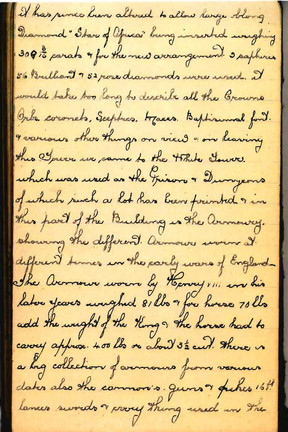 it has since been altered to allow large oblong
Diamond "Star of Africa" being inserted weighing
309 3/16 carats & for the new arrangement 3 saphires
56 Brilliant & 52 rose diamonds were used. it
would take too long to describe all the Crowns
Orbs coronets, Sceptres. Baptisimal font.
& various other things on view & on leaving
this Tower we came to the White Tower.
which was used as the Prison & Dungeons
of which such a lot has been printed & in
this part of the Building is the Armoury.
showing the different Armour worn at
different times in the early wars of England –
The Armour worn by Henry VIII. in his
later years weighed 81 lbs & for horse 70 lbs
add the weight of the King & the horse had to
carry approx. 400 lbs or about 3½ cwt. There is
a big collection of armours from various
dates also the cannon's. guns & pikes 16th
lances swords & every thing used in the